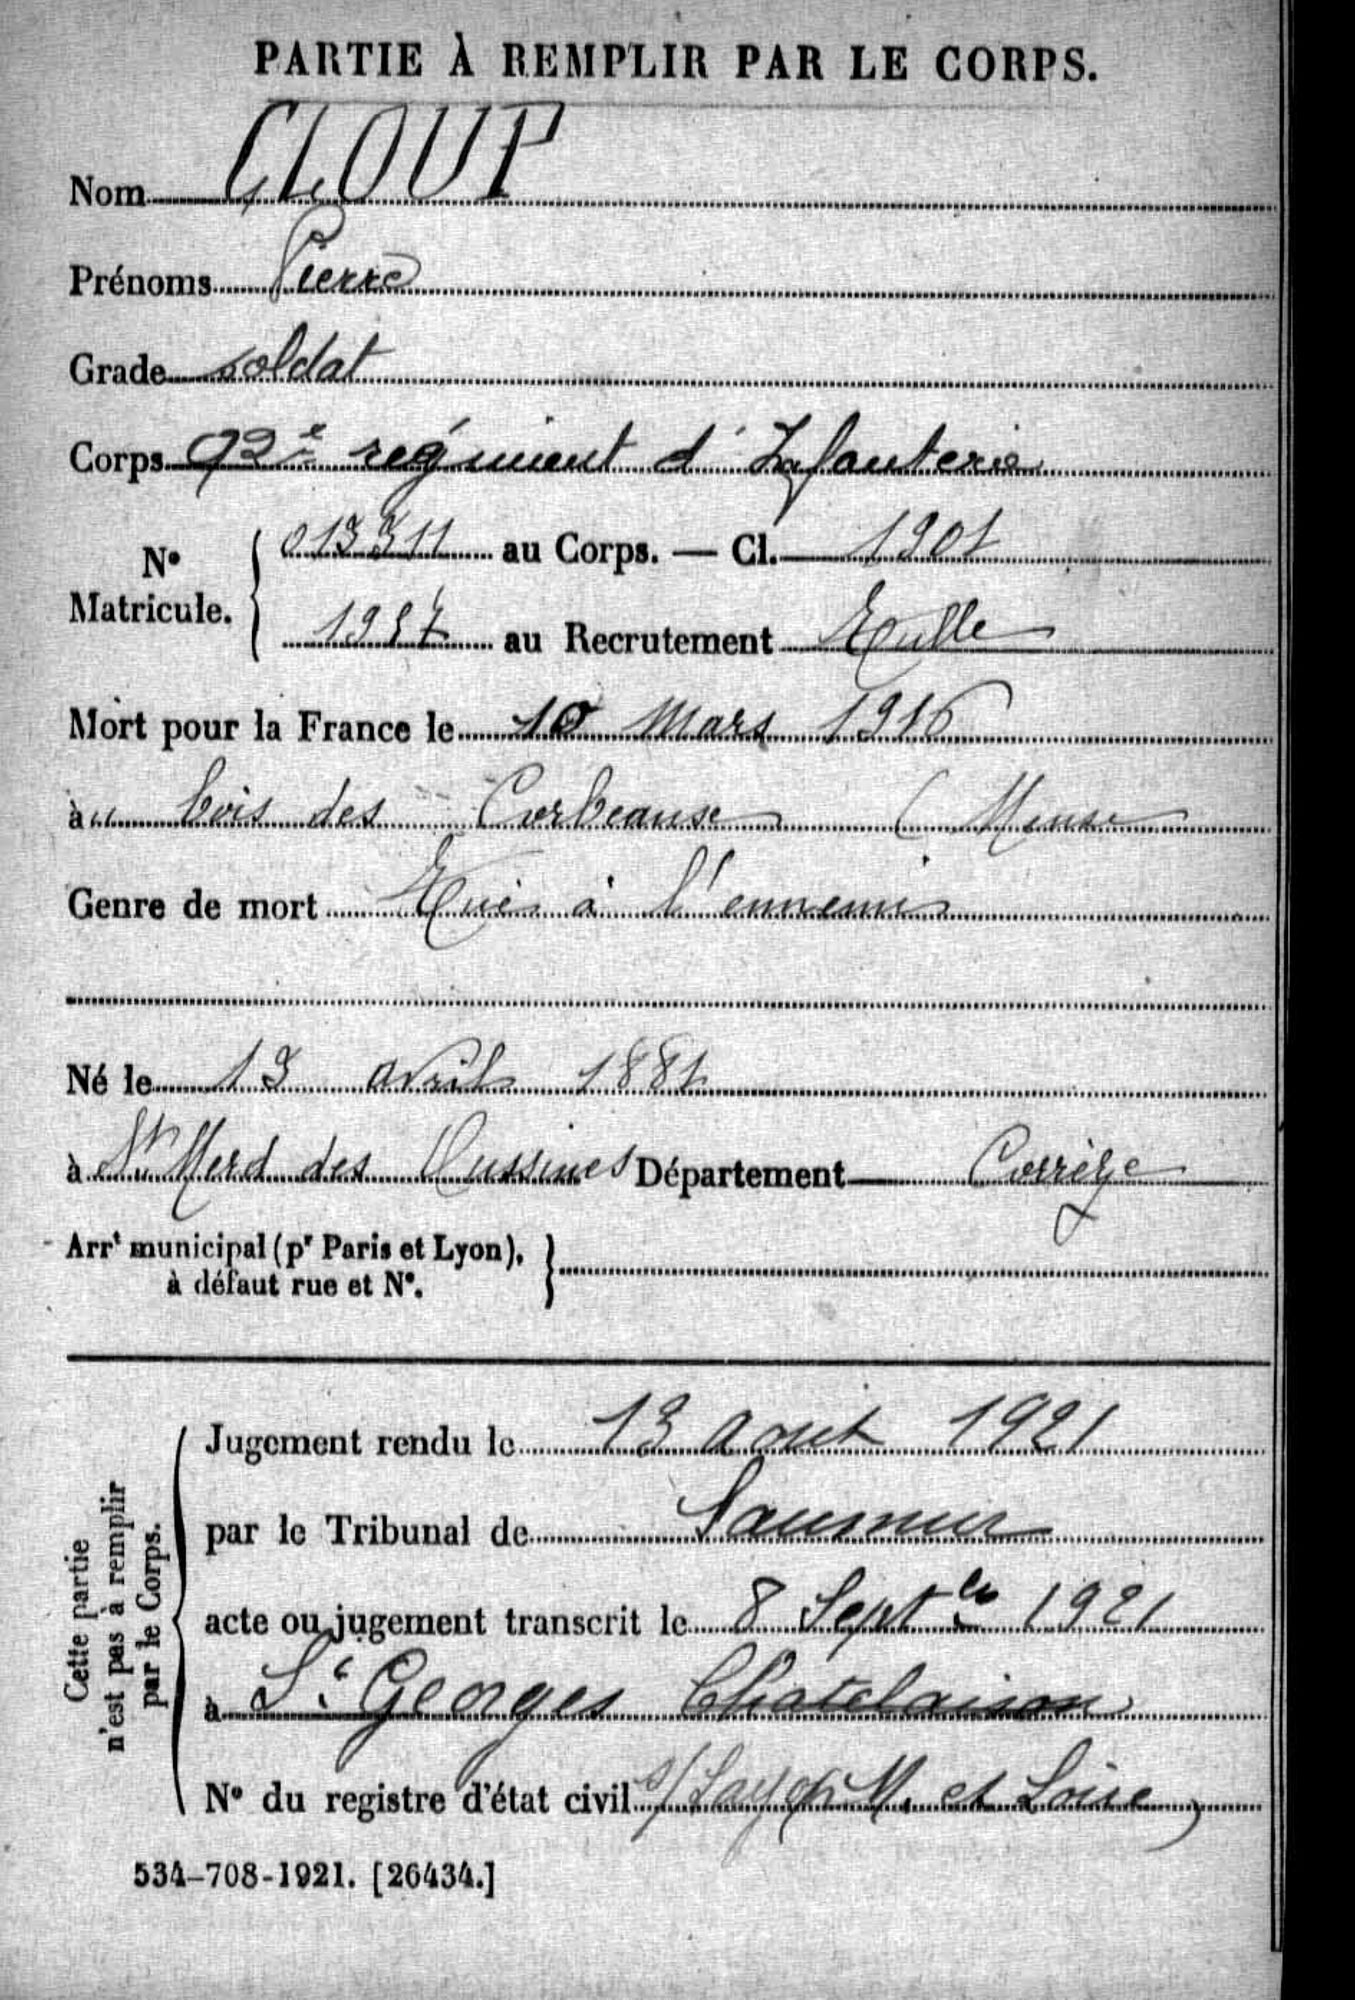 PARTIE À REMPLIR PAR LE CORPS.
Nom CLOUP
Prénoms Pierre
Grade soldat
Corps 92e régiment d'Infanterie
No Matricule. 013311 au Corps. — Cl. 1901
au Recrutement Tulle
Mort pour la France le 10 Mars 1916
au bois des Corbeaux (Meuse
Genre de mort Tué à l'ennemi
Né le 13 avril 1881
à St Merd des Oussines Département Corrèze
Arrt municipal (pr Paris et Lyon),
à défaut rue et No.
Cette partie
n'est pas à remplir
par le Corps.
Jugement rendu le 13 aout 1921
par le Tribunal de Saumur
acte ou jugement transcrit le 8 Septbre 1921
à St Georges Chatelaison
No du registre d'état civil s/Layon M. et Loire)
534-708-1921. [26434.]